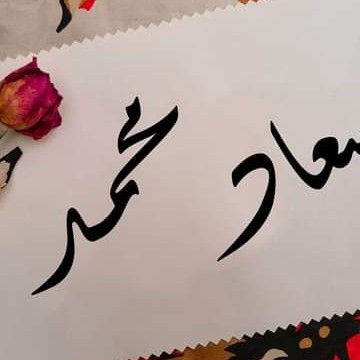 سعاد محمد